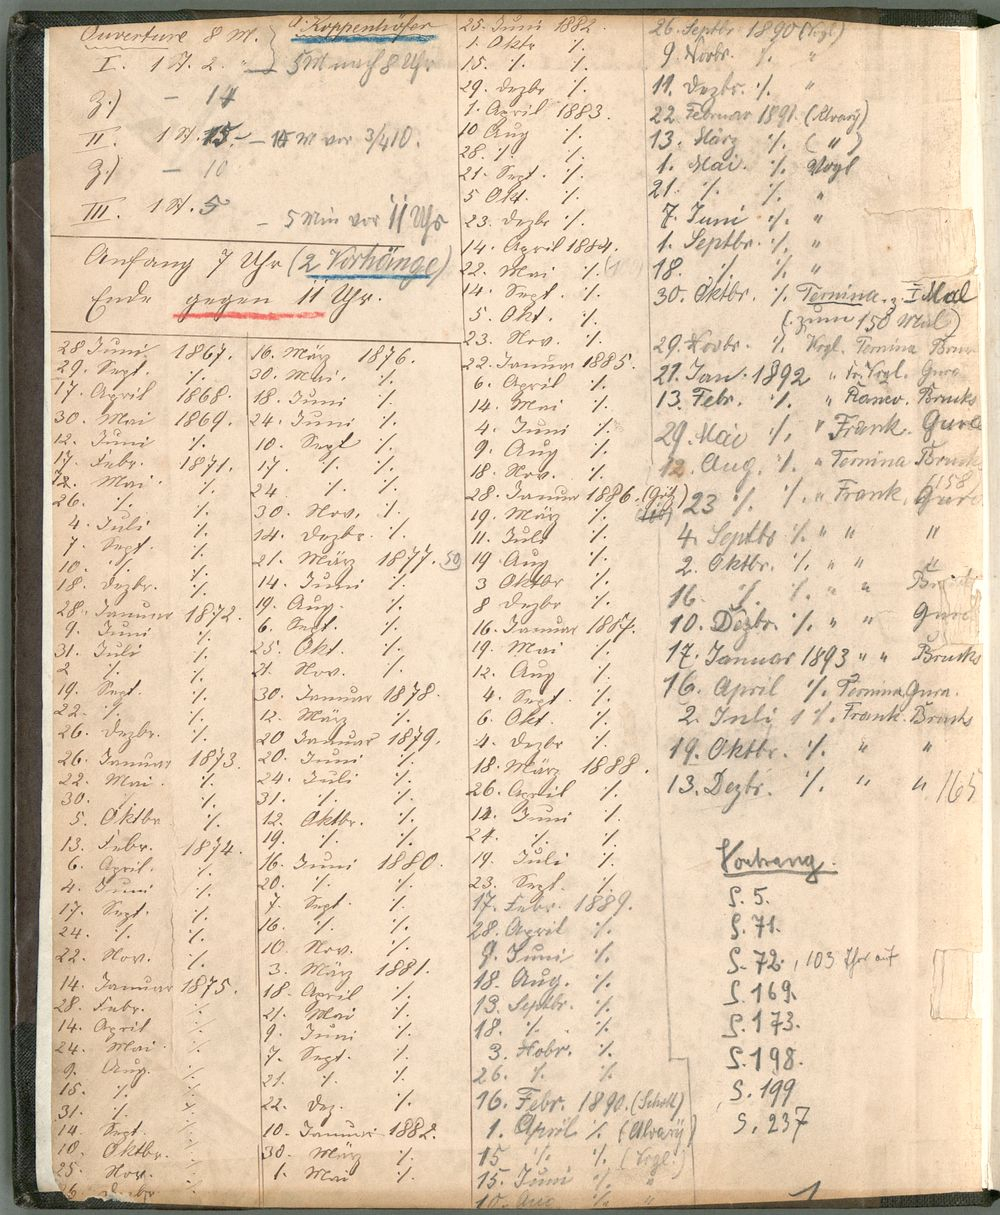 Ouverture 8 M.
I. 1 St. 2. " — 5 M nach 8 Uhr
Z.) — 14
II. 1 St. 15. — 15 M vor 3/4 10.
Z.) — 10
III. 1 St. 5 — 5 Min vor 11 Uhr
Koppenhöfer
Anfang 7 Uhr (2 Vorhänge)
Ende gegen 11 Uhr.
28 Juni 1867.
29. Sept. ·/.
17. April 1868.
30. Mai 1869.
12. Juni ·/.
17. Febr. 1871.
12. Mai ·/.
26. ·/. ·/.
4. Juli ·/.
7. Sept. ·/.
10. ·/. ·/.
18. Dezbr. ·/.
28. Januar 1872.
9. Juni ·/.
31. Juli ·/.
2 ·/. ·/.
19. Sept. ·/.
22. ·/. ·/.
26. Dezbr. ·/.
26. Januar 1873.
22. Mai ·/.
30. ·/. ·/.
5. Oktbr. ·/.
13. Febr. 1874.
6. April. ·/.
4. Juni ·/.
17. Sept. ·/.
24. ·/. ·/.
22. Nov. ·/.
14. Januar 1875.
28. Febr. ·/.
14. April ·/.
24. Mai ·/.
9. Aug. ·/.
15. ·/. ·/.
31. ·/. ·/.
14. Sept. ·/.
10. Oktbr. ·/.
25. Nov. ·/.
26. Dezbr
16. März 1876.
30. Mai. ·/.
18. Juni ·/.
24. Juni ·/.
10. Sept ·/.
17. ·/. ·/.
24. ·/. ·/.
30. Nov. ·/.
14. Dezbr. ·/.
21. März 1877. 50
14. Juni ·/.
19. Aug. ·/.
6. Sept. ·/.
25. Okt. ·/.
21. Nov. ·/.
30. Januar 1878.
12. März ·/.
20 Januar 1879.
20. Juni ·/.
24. Juli ·/.
31. ·/. ·/.
12. Oktbr. ·/.
19. ·/. ·/.
16. Juni 1880.
20. ·/. ·/.
7. Sept. ·/.
16. ·/. ·/.
10. Nov. ·/.
3. März 1881.
18. April ·/.
21. Mai ·/.
9. Juni ·/.
7. Sept. ·/.
21. ·/. ·/.
22. Dez. ·/.
10. Januar 1882.
30. März ·/.
1. Mai ·/.
25. Juni 1882.
1. Oktr ·/.
15. ·/. ·/.
29. Dezbr ·/.
1. April 1883.
10 Aug ·/.
28. ·/. ·/.
21. Sept. ·/.
5 Okt. ·/.
23. Dezbr ·/.
14. April 1884.
22. Mai ·/.
14. Sept. ·/.
5. Okt. ·/.
23. Nov. ·/.
22. Januar 1885.
6. April ·/.
14. Mai ·/.
4. Juni ·/.
9. Aug ·/.
18. Nov. ·/.
28. Januar 1886. (Götz)
19. März ·/.
11. Juli ·/.
19 Aug ·/.
3 Oktbr ·/.
8 Dezbr ·/.
16. Januar 1887.
19. Mai ·/.
12. Aug ·/.
4. Sept. ·/.
6. Okt. ·/.
4. Dezbr ·/.
18. März 1888.
26. April ·/.
14. Juni ·/.
24. ·/. ·/.
19. Juli ·/.
23. Sept. ·/.
17. Febr. 1889.
28. April ·/.
9. Juni ·/.
18. Aug. ·/.
13. Septbr. ·/.
18. ·/. ·/.
3. Nobr. ·/.
26. ·/. ·/.
16. Febr. 1890. (Schott)
1. April ·/. (Alvary)
15 ·/. ·/. (Vogl.)
15. Juni ·/. "
10. Aug ·/. "
26. Septbr 1890 (Vogl)
9. Novbr. ·/. "
11. Dezbr. ·/. "
22. Februar 1891. (Alvary)
13. März ·/. ( " )
1. Mai. ·/. Vogl
21. ·/. ·/. "
7. Juni ·/. "
1. Septbr. ·/. "
18. ·/. ·/. "
30. Oktbr. ·/. Ternina z. I Mal
(zum 150 Mal)
29. Novbr. ·/. Vogl. Ternina Bruc
27. Jan. 1892 " Fr. Vogl. Gura
13. Febr. ·/. " Bruks
29. Mai ·/. " Frank. Gura
12. Aug. ·/. " Ternina Bruck
(158
23 ·/. ·/. " Frank. Gura
4. Septbr ·/. " " "
2. Oktbr. ·/. " " "
16. ·/. ·/. " " Brucks
10. Dezbr. ·/. " " Gura
17. Januar 1893 " " Brucks
16. April ·/. Ternina Gura.
2. Juli ·/. Frank. Brucks
19. Oktbr. ·/. " "
13. Dezbr. ·/. " " 165
Vortrang.
S. 5.
S. 71.
S. 72., 103
S. 169.
S. 173.
S. 198.
S. 199
S. 237
1